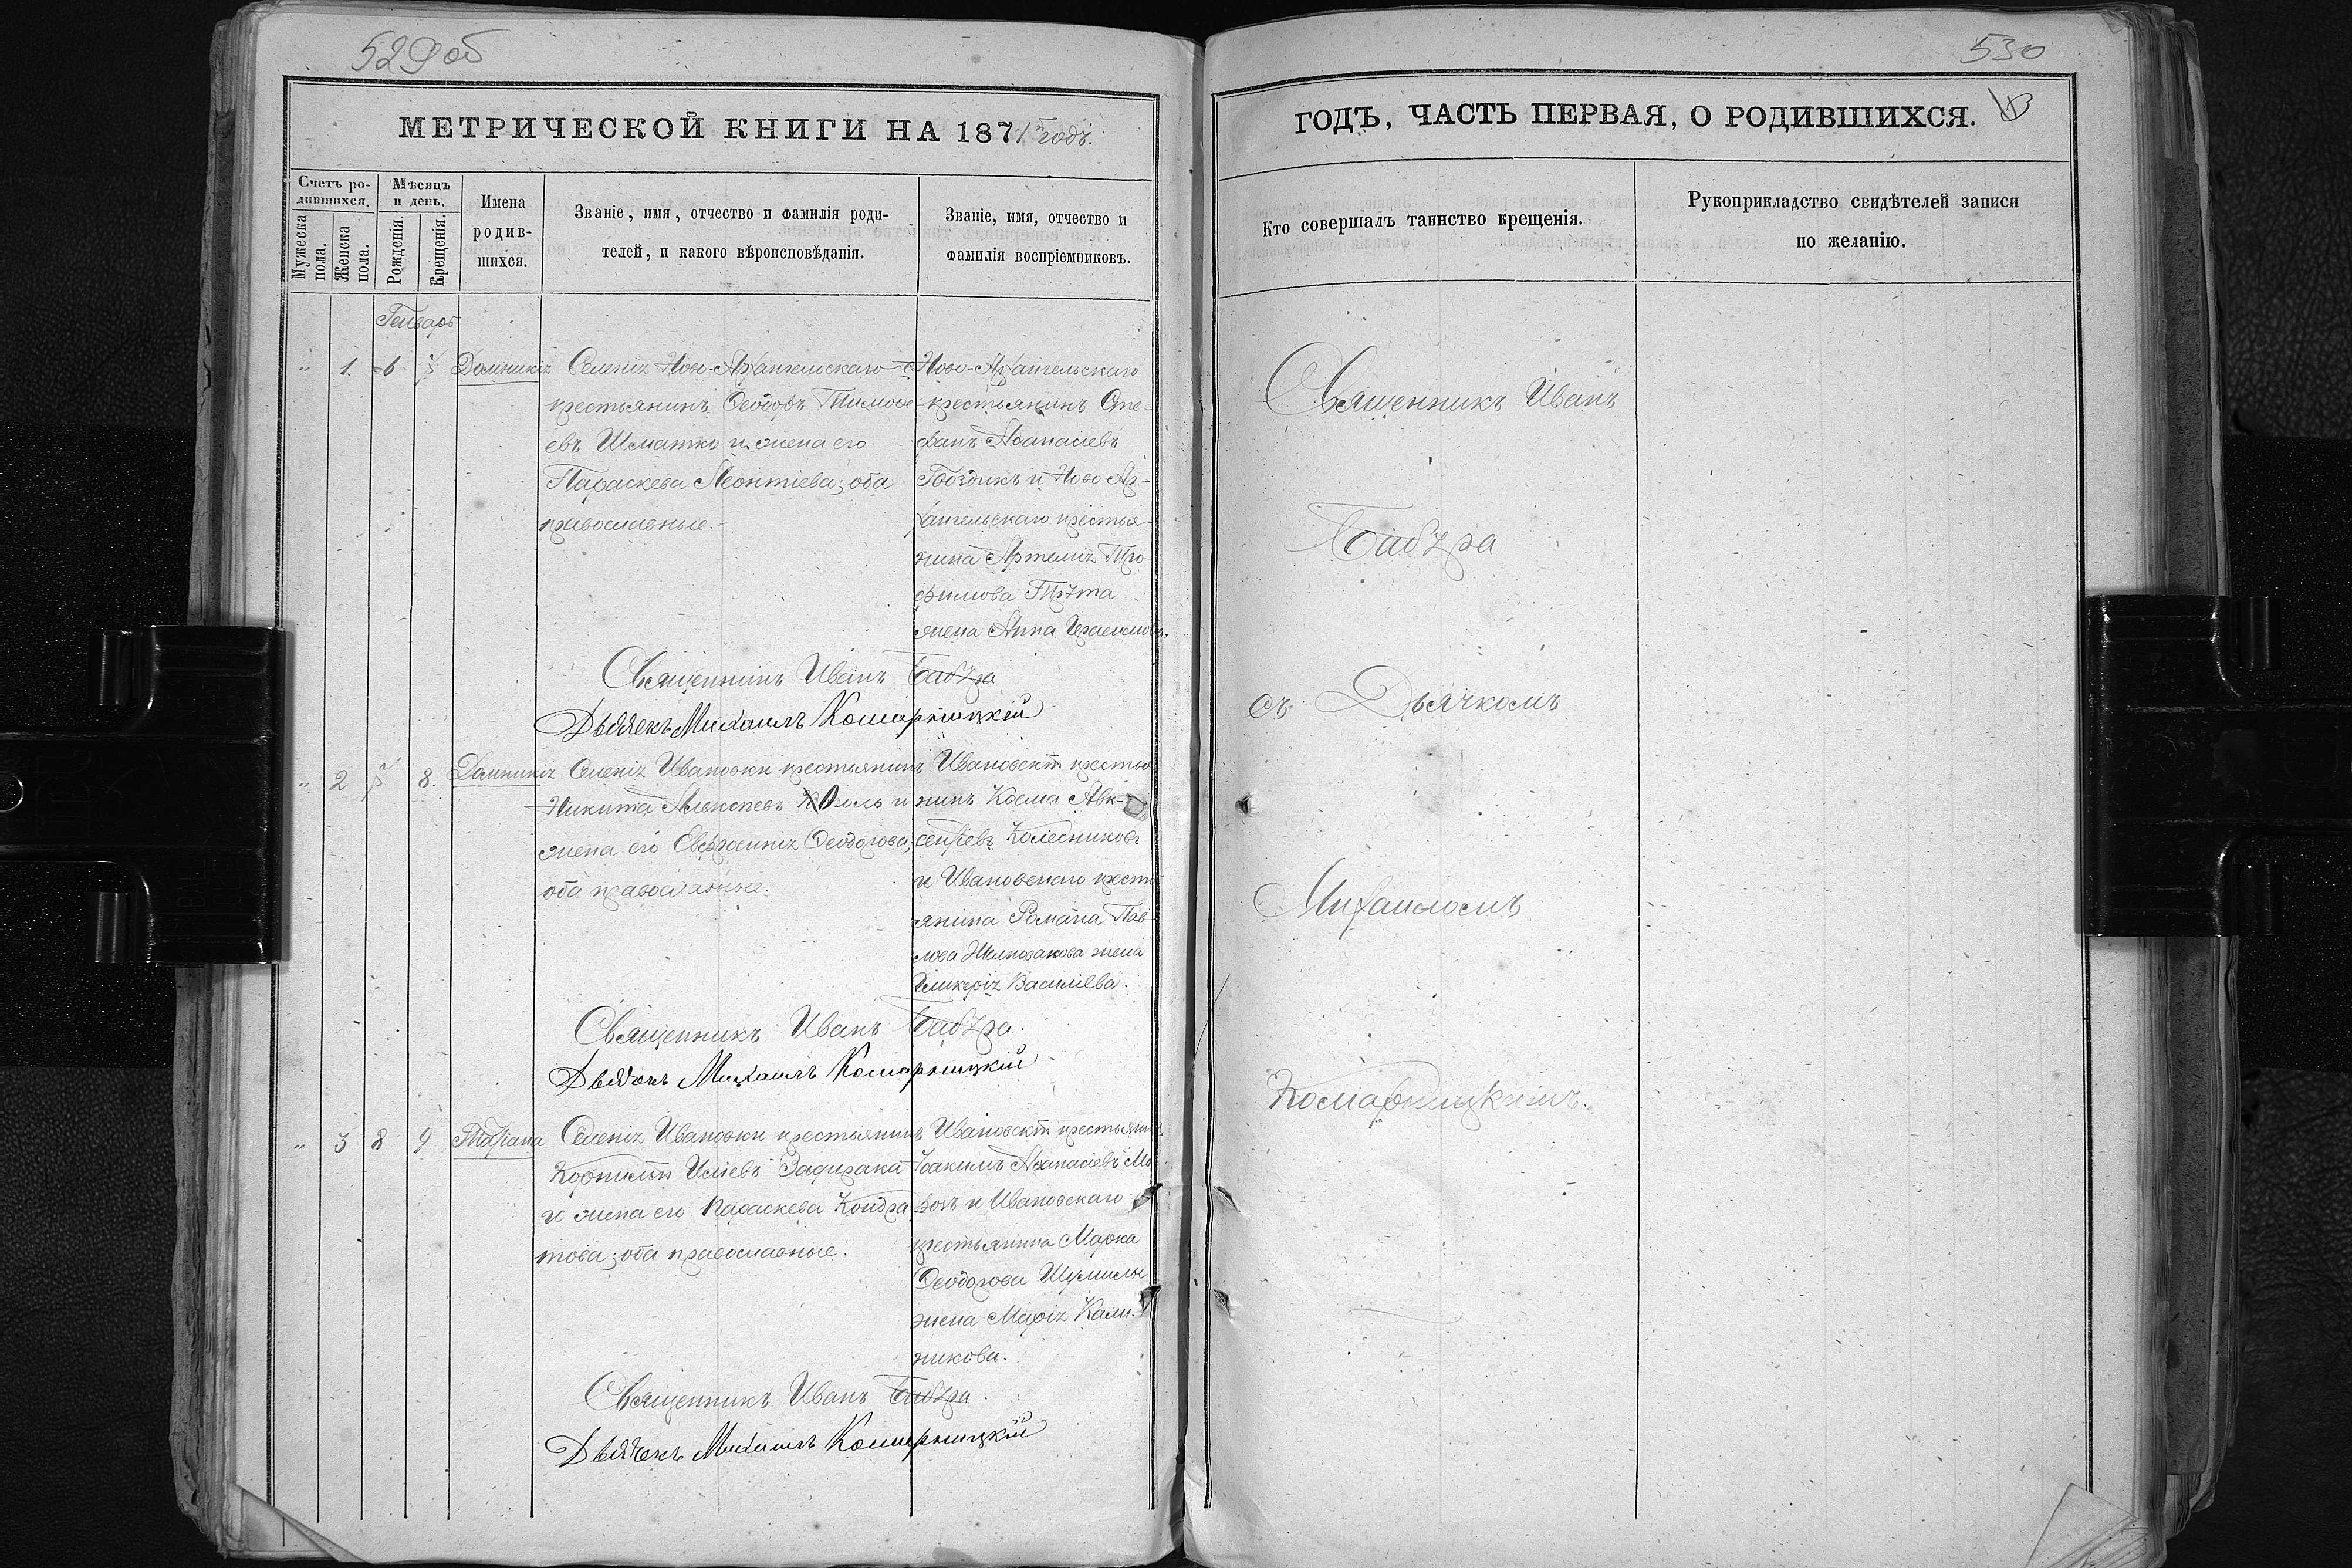 529 об
МЕТРИЧЕСКОЙ КНИГИ НА 1871 годъ.
Счетъ родившихся.
Мужеска пола.
Женска пола.
Мѣсяцъ и день.
Рожденія.
Крещенія.
Имена родив-
шихся.
Званіе, имя, отчество и фамилія роди-
телей, и какого вѣроисповѣданія.
Званіе, имя, отчество и
фамилія воспріемниковъ.
Генварь
" 1. 6 7 Домникія
Селенія Ново-Архангельскаго
крестьянинъ Ѳеодоръ Тимоѳе-
евъ Шматко и жена его
Параскева Леонтіева; оба
православные.-
Ново-Архангельскаго
крестьянинъ Сте-
фанъ Аѳанасіевъ
Гвоздикъ и Ново Ар-
хангельскаго крестья-
нина Артемія Тро
фимова
жена Анна
Священникъ Иванъ
Дьячекъ Михаилъ Комарницкій
" 2 8. Домникія
Селенія Ивановки крестьянинъ
Никита и
жена его Евфросинія Ѳеодорова,
оба православные.
крестья
нинъ Косма Авк-
сентіевъ Колесниковъ
и Ивановскаго крестья
янина Романа Пав-
лова жена
Гликерія Василіева.
Священникъ Иванъ
Дьячокъ Михаилъ Комарницкій
" 3 8 9 Татіана
Селенія Ивановки крестьянинъ
Корнилій Иліевъ Задирака
и жена его Параскева Кондра
това; оба православные.
крестьянинъ
Іоакимъ Аѳанасіевъ Мо
розъ и Ивановскаго
крестьянина Марка
Ѳеодорова Шумилы
жена Марія Кали-
никова.
Священникъ Иванъ
Дьячекъ Михаилъ Комарницкій
530
ГОДЪ, ЧАСТЬ ПЕРВАЯ, О РОДИВШИХСЯ.
Кто совершалъ таинство крещенія.
Рукоприкладство свидѣтелей записи
по желанію.
Священникъ Иванъ
съ Дьячкомъ
Михаиломъ
Комарницкимъ.